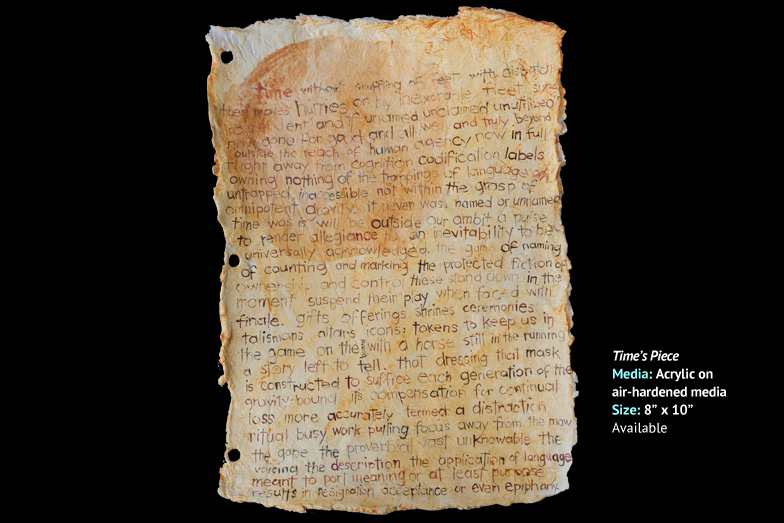 time without snuffing of rest with dispatch
hurries on by inexorable fleet sure
and if unnamed unclaimed unutilized
now gone for good and all well and truly beyond
outside the reach of human agency now in full
flight away from cognition codification labels
owning nothing of the trappings of language an
untrapped inaccessible not within the grasp of
omnipotent gravity. it never was, named or unnamed
time was is will be outside our ambit a pulse
to render allegiance an inevitability to be
universally acknowledged. the game of naming
of counting and marking the protected fiction of
ownership and control these stand down in the
moment suspend their play when faced with
finale. gifts offerings shrines ceremonies
talismans altars icons: tokens to keep us in
the game on the will a horse still in the running
a story left to tell. that dressing that mask
is constructed to suffice each generation of the
gravity-bound its compensation for continual
loss more accurately termed a distraction
ritual busy work pulling focus away from the maw
the gape the proverbial vast unknowable the
voicing the description the application of language
meant to port meaning or at least purpose
results in resignation acceptance or even epiphany.
Time's Piece
Media: Acrylic on
air-hardened media
Size: 8” x 10”
Available